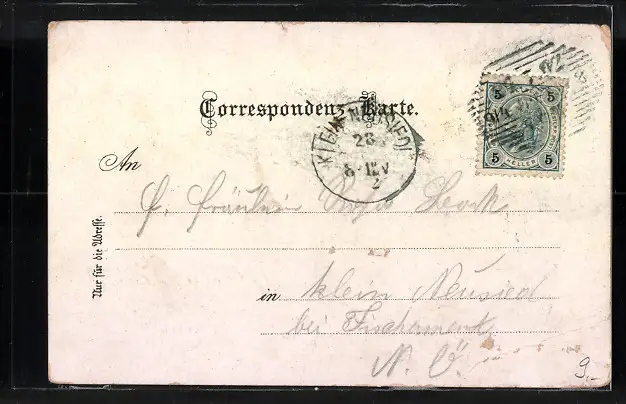 Correspondenz-Karte.
KLEIN NEUSIEDL
28
8-12V
2
5 5
5 HELLER 5
An
Fräulein
Nur für die Adresse.
in Klein Neusiedl
bei Fischamend
N. Ö.
9.-